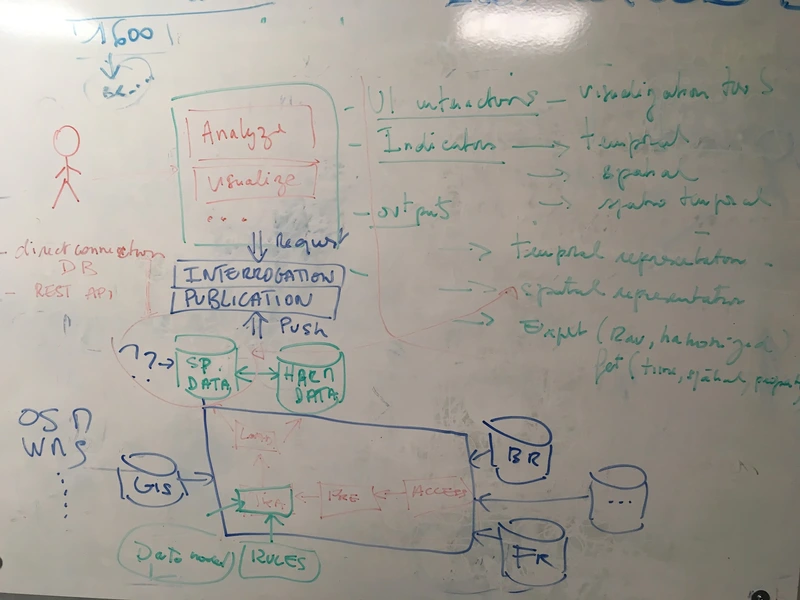 1600
BR...
Analyze
Visualize
...
- UI interactions - visualization tools
- Indicators → temporal
→ spatial
→ spatio temporal
- outputs
→ temporal representation
→ spatial representation
→ Export (Raw, harmonized)
- direct connection
DB
- REST API
Request
INTERROGATION
PUBLICATION
PUSH
??
SP.
DATA
HARM
DATA
OSM
WMS
GIS
BR
...
FR
PRE
ACCESS
Data model
RULES